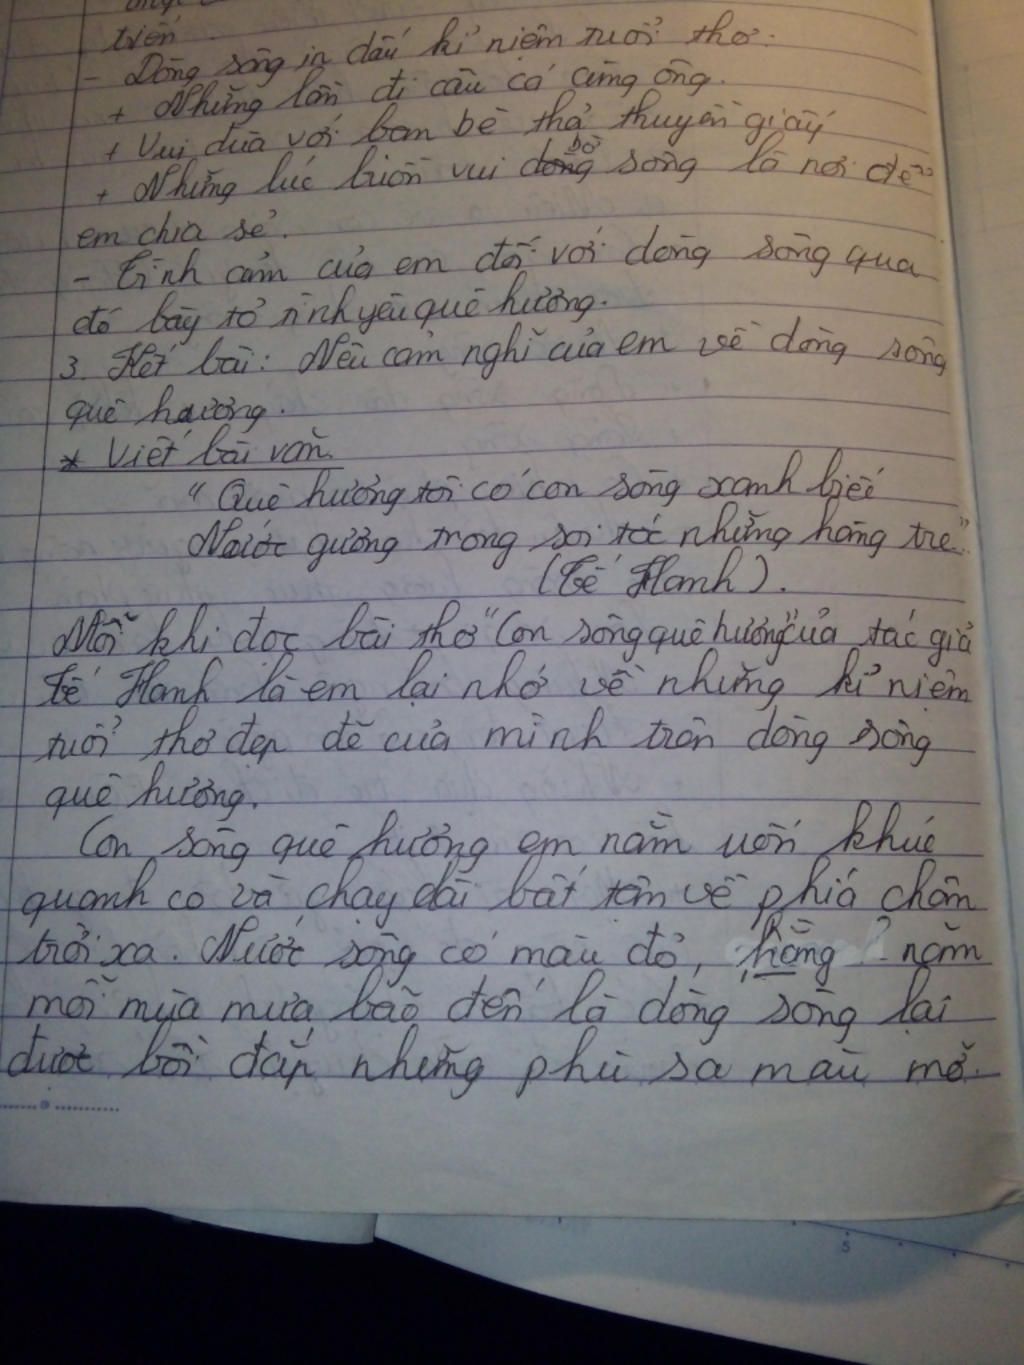 triền
- Dòng sông in dấu kỉ niệm tuổi thơ.
+ Những lần đi câu cá cùng ông.
+ Vui đùa với bạn bè thả thuyền giấy
+ Những lúc buồn vui dòng sông là nơi để
em chia sẻ.
- Tình cảm của em đối với dòng sông qua
đó bày tỏ tình yêu quê hương.
3. Kết bài: Nêu cảm nghĩ của em về dòng sông
quê hương.
* Viết bài văn.
"Quê hương tôi có con sông xanh biếc
Nước gương trong soi tóc những hàng tre"
(Tế Hanh).
Mỗi khi đọc bài thơ "Con sông quê hương" của tác giả
Tế Hanh là em lại nhớ về những kỉ niệm
tuổi thơ đẹp đẽ của mình trên dòng sông
quê hương.
Con sông quê hương em nằm uốn khúc
quanh co và chạy dài bất tận về phía chân
trời xa. Nước sông có màu đỏ, hằng năm
mỗi mùa mưa bão đến là dòng sông lại
được bồi đắp những phù sa màu mỡ.
5